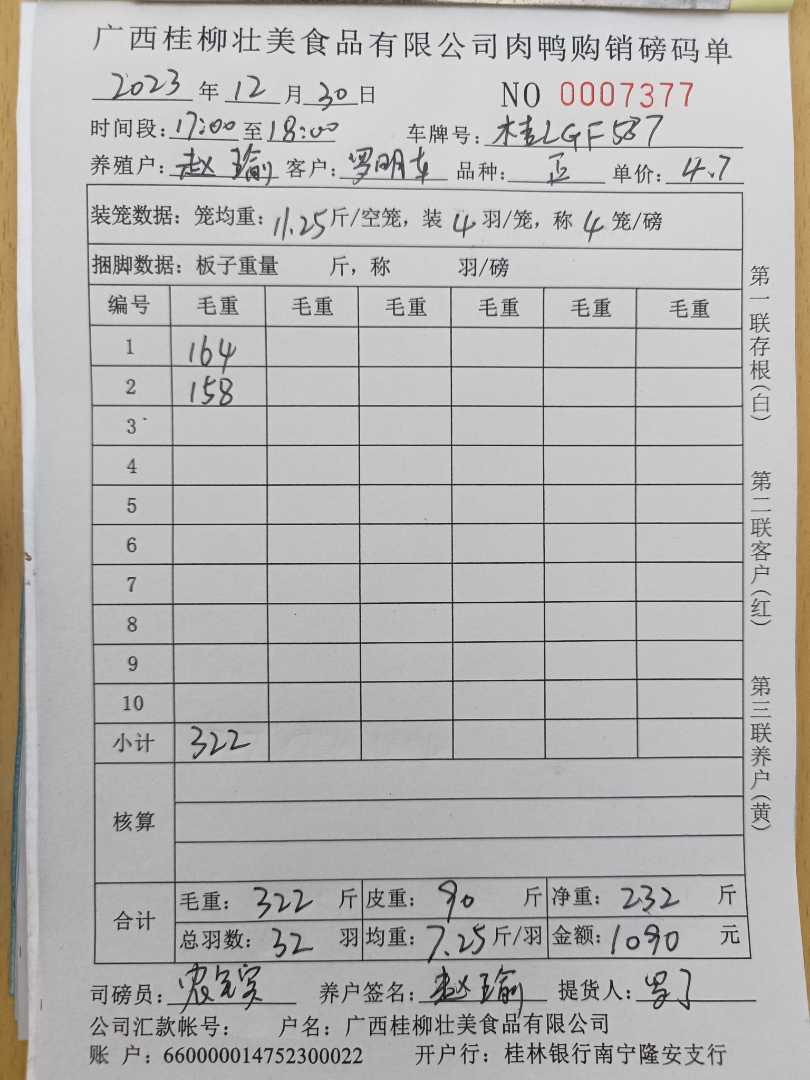 广西桂柳壮美食品有限公司肉鸭购销磅码单
2023年12月30日 NO 0007377
时间段:17:00至18:00 车牌号:桂LGF587
养殖户:赵瑜 客户:罗明车 品种:正 单价:4.7
装笼数据:笼均重:11.25斤/空笼,装4羽/笼,称4笼/磅
捆脚数据:板子重量 斤,称 羽/磅
编号 毛重 毛重 毛重 毛重 毛重 毛重
1 164
2 158
3
4
5
6
7
8
9
10
小计 322
核算
合计 毛重:322斤 皮重:90斤 净重:232斤
总羽数:32羽 均重:7.25斤/羽 金额:1090元
司磅员: 养户签名:赵瑜 提货人:
公司汇款帐号: 户名:广西桂柳壮美食品有限公司
账 户:660000014752300022 开户行:桂林银行南宁隆安支行
第一联存根(白)
第二联客户(红)
第三联养户(黄)